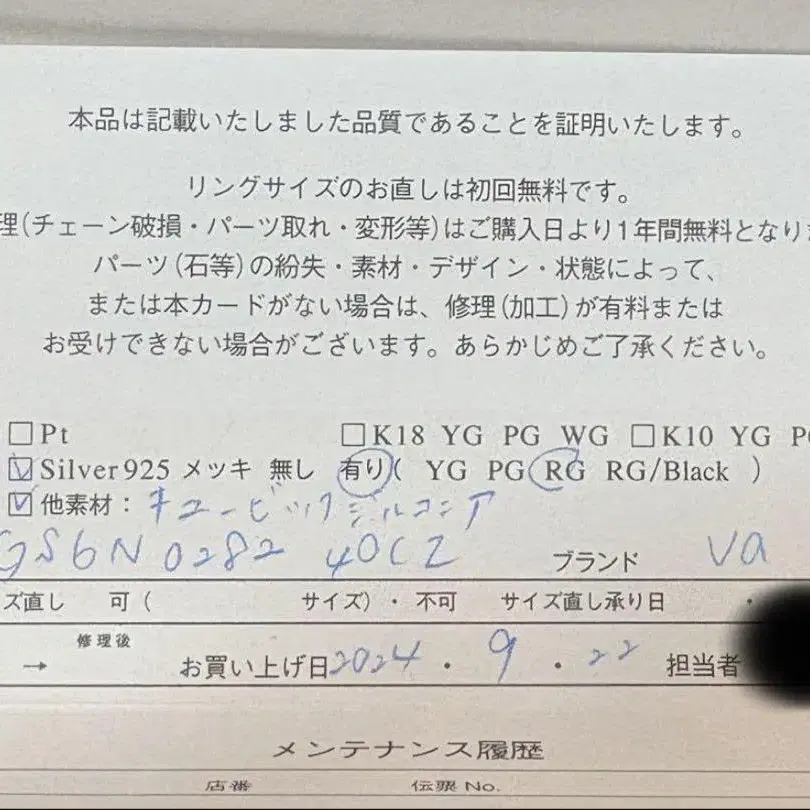 本品は記載いたしました品質であることを証明いたします。
リングサイズのお直しは初回無料です。
理(チェーン破損・パーツ取れ・変形等)はご購入日より1年間無料となりま
パーツ(石等)の紛失・素材・デザイン・状態によって、
または本カードがない場合は、修理(加工)が有料または
お受けできない場合がございます。あらかじめご了承ください。
□Pt □K18 YG PG WG □K10 YG PG
☑Silver925 メッキ 無し 有り( YG PG RG RG/Black )
☑他素材: キュービックジルコニア
GS6N 0282 40CZ ブランド va
ズ直し 可( サイズ)・不可 サイズ直し承り日 ・
→ 修理後 お買い上げ日2024・9・22 担当者
メンテナンス履歴
店番 伝票No.